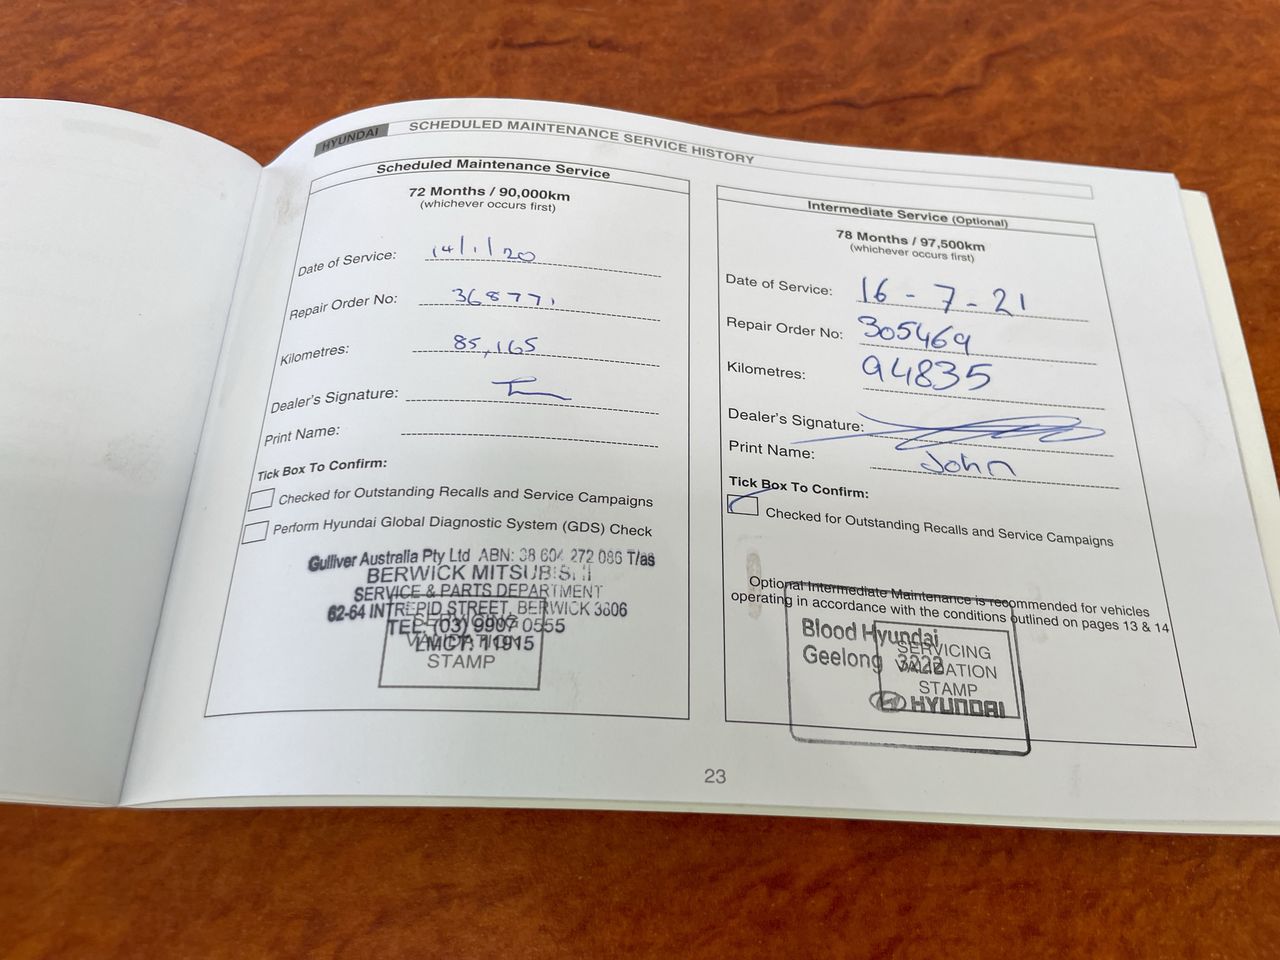 HYUNDAI SCHEDULED MAINTENANCE SERVICE HISTORY
Scheduled Maintenance Service
72 Months / 90,000km
(whichever occurs first)
Date of Service: 14/1/20
Repair Order No: 368771
Kilometres: 85,165
Dealer's Signature:
Print Name:
Tick Box To Confirm:
Checked for Outstanding Recalls and Service Campaigns
Perform Hyundai Global Diagnostic System (GDS) Check
Gulliver Australia Pty Ltd ABN: 38 604 272 086 T/as
BERWICK MITSUBISHI
SERVICE & PARTS DEPARTMENT
62-64 INTREPID STREET, BERWICK 3806
SERVICING
TEL: (03) 9907 0555
VALIDATION
LMCT: 11915
STAMP
Intermediate Service (Optional)
78 Months / 97,500km
(whichever occurs first)
Date of Service: 16-7-21
Repair Order No: 305469
Kilometres: 94835
Dealer's Signature:
Print Name: John
Tick Box To Confirm:
Checked for Outstanding Recalls and Service Campaigns
Optional Intermediate Maintenance is recommended for vehicles
operating in accordance with the conditions outlined on pages 13 & 14
Blood Hyundai
Geelong 3222
SERVICING
VALIDATION
STAMP
HYUNDAI
23